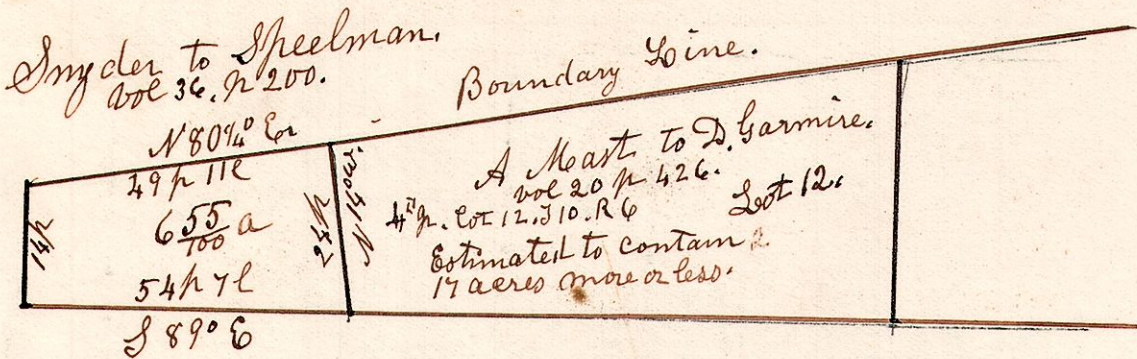 Snyder to Speelman.
vol 36. p 200.
Boundary Line.
N 80¼° E
49 p 11 l
6 55/100 a
54 p 7 l
S 89° E
14 p
24 p
A Mast to D. Garmire.
vol 20 p 426.
Lot 12. T 10. R 6
Lot 12.
Estimated to contain
17 acres more or less.